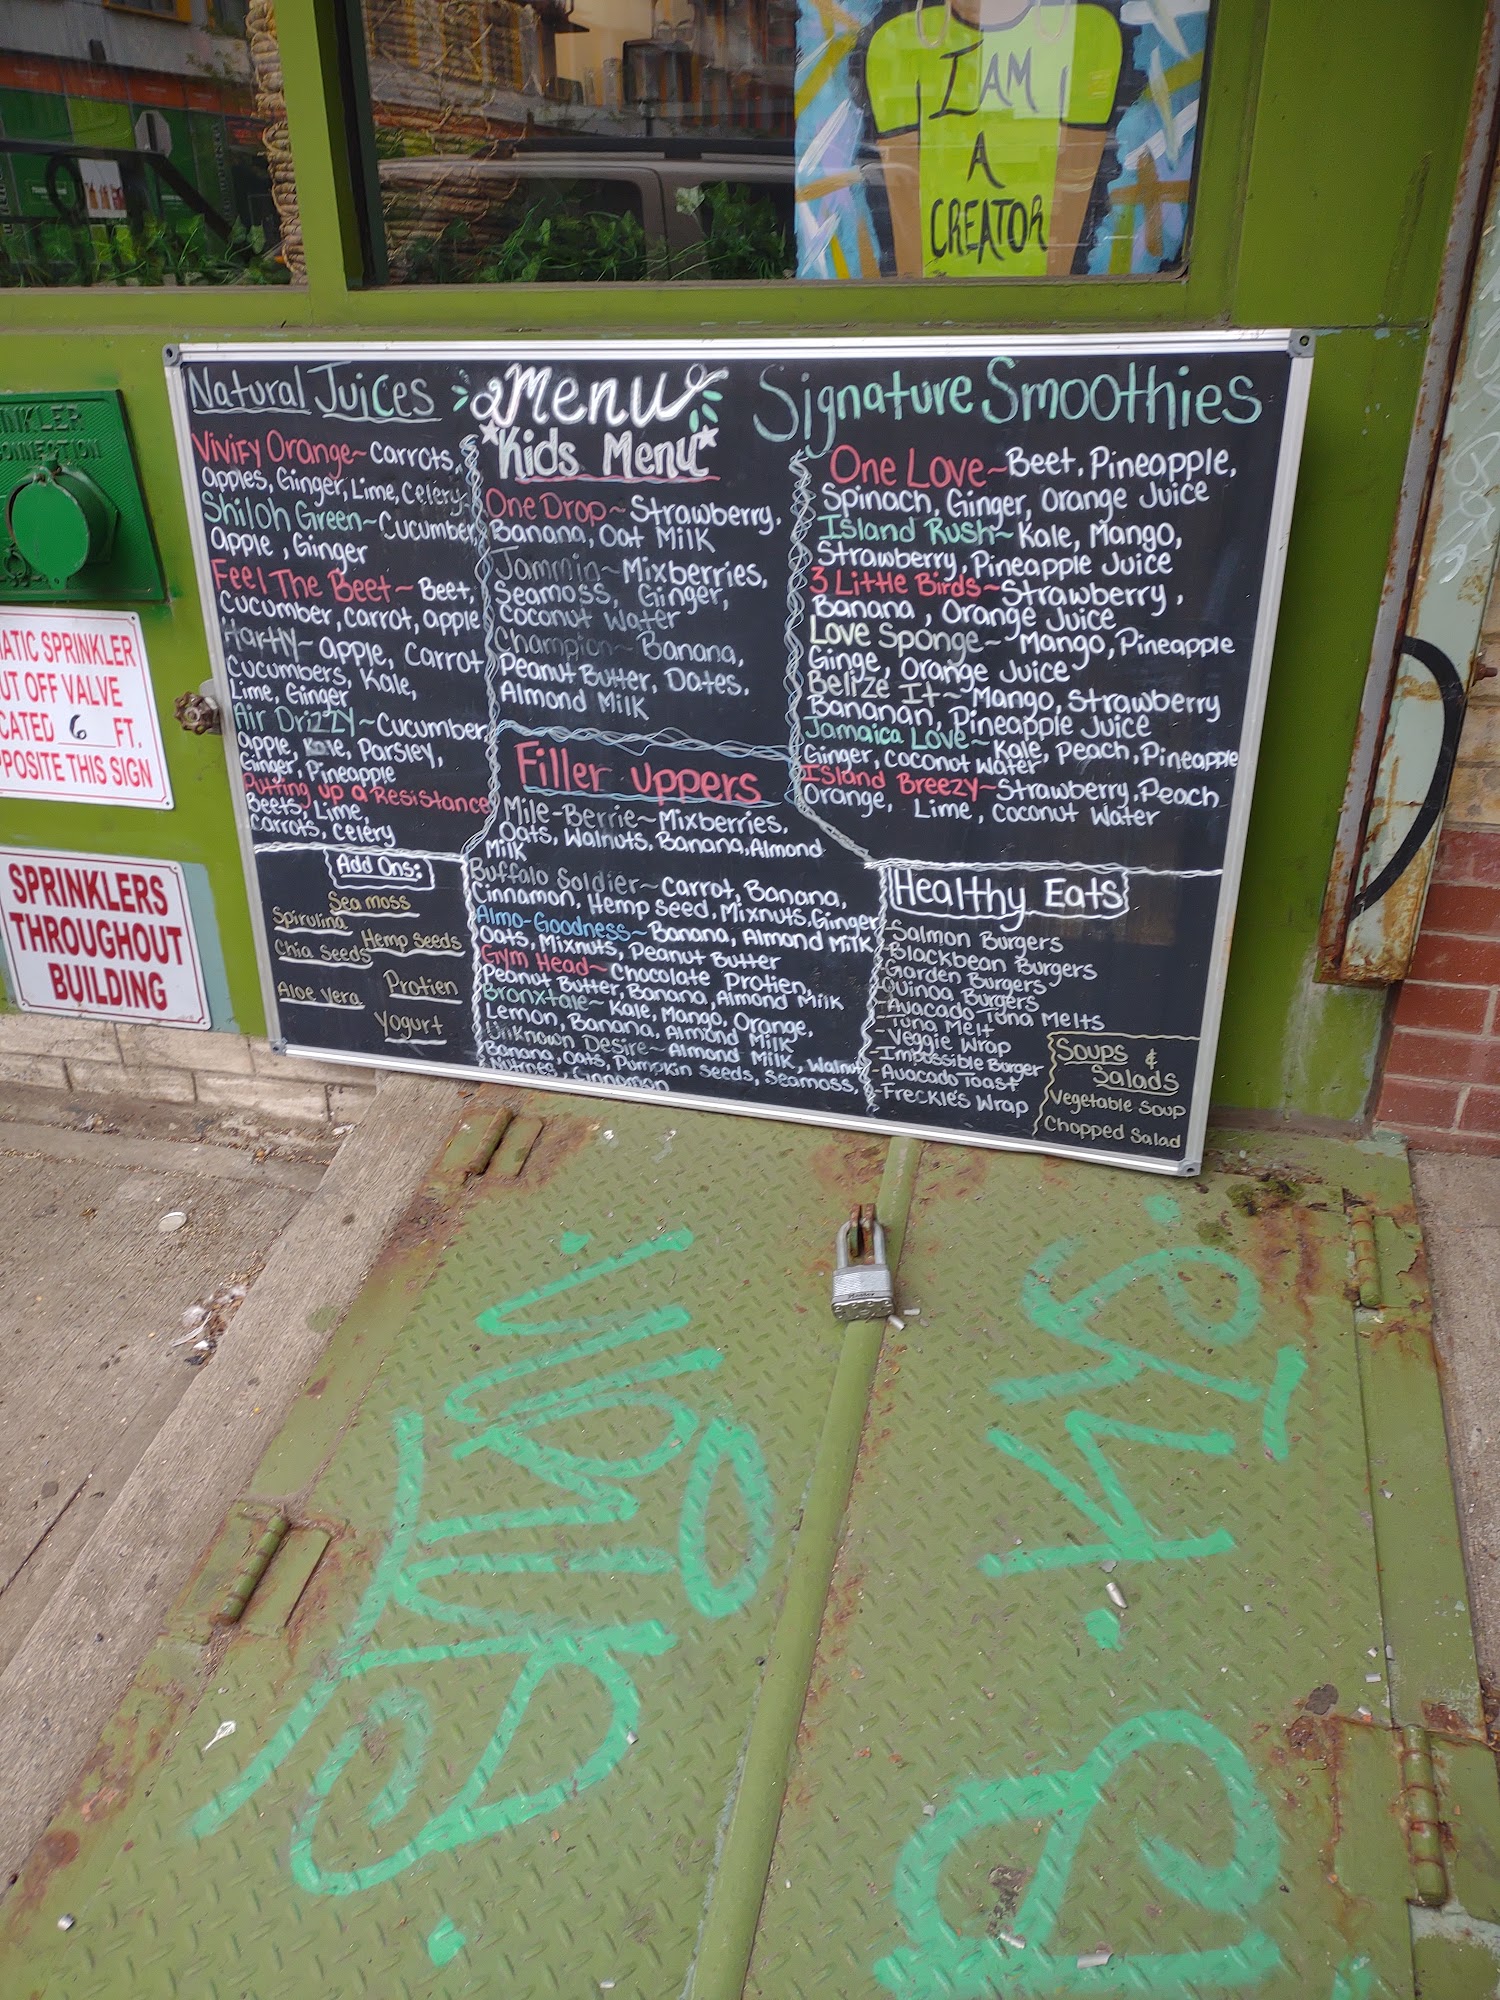 I AM
A
CREATOR
NKLER
CONNECTION
MATIC SPRINKLER
UT OFF VALVE
CATED 6 FT.
PPOSITE THIS SIGN
SPRINKLERS
THROUGHOUT
BUILDING
Natural Juices
Vivify Orange~Carrots,
apples, Ginger, Lime, Celery
Shiloh Green~Cucumber,
apple, Ginger
Feel The Beet~ Beet,
Cucumber, carrot, apple
Hartly~ apple, Carrot
Cucumbers, Kale,
Lime, Ginger
Air Drizzy~Cucumber,
apple, Kale, Parsley,
Ginger, Pineapple
Putting up a Resistance
Beets, Lime,
Carrots, Celery
Add Ons:
Sea moss
Spirulina
Hemp Seeds
Chia Seeds
Protien
Aloe Vera
Yogurt
Menu
Kids Menu
One Drop~Strawberry,
Banana, Oat Milk
Jammin~Mixberries,
Seamoss, Ginger,
Coconut Water
Champion~ Banana,
Peanut Butter, Dates,
Almond Milk
Filler uppers
Mile-Berrie~Mixberries,
Oats, Walnuts, Banana, Almond
Milk
Buffalo Soldier~ Carrot, Banana,
Cinnamon, Hemp Seed, Mixnuts, Ginger
Almo-Goodness~ Banana, Almond Milk
Oats, Mixnuts, Peanut Butter
Gym Head~ Chocolate Protien,
Peanut Butter, Banana, Almond Milk
Bronxtale~ Kale, Mango, Orange,
Lemon, Banana, Almond Milk
Unknown Desire~ Almond Milk, Walnut
Banana, Oats, Pumpkin Seeds, Seamoss,
Nutmeg, Cinnamon
Signature Smoothies
One Love~Beet, Pineapple,
Spinach, Ginger, Orange Juice
Island Rush~ Kale, Mango,
Strawberry, Pineapple Juice
3 Little Birds~Strawberry,
Banana, Orange Juice
Love Sponge~ Mango, Pineapple
Ginge, Orange Juice
Belize It~ Mango, Strawberry
Bananan, Pineapple Juice
Jamaica Love~ Kale, Peach, Pineapple
Ginger, Coconut Water
Island Breezy~Strawberry, Peach
Orange, Lime, Coconut Water
Healthy Eats
-Salmon Burgers
-Blackbean Burgers
-Garden Burgers
-Quinoa Burgers
-Avacado Tuna Melts
-Tuna Melt
-Veggie Wrap
-Impossible Burger
-Avacado Toast
-Freckle's Wrap
Soups &
Salads
Vegetable Soup
Chopped Salad